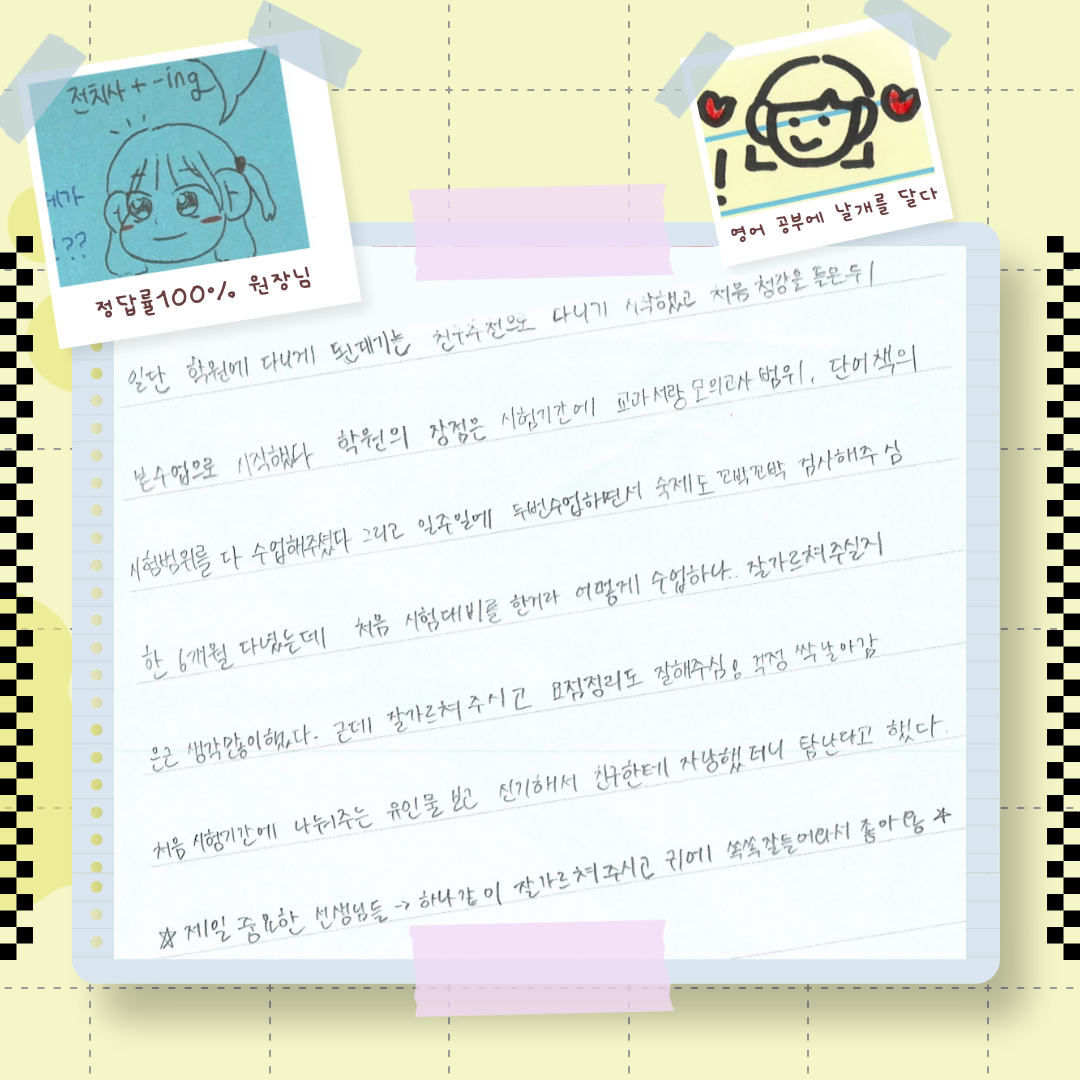 전치사 + -ing
제가
!??
정답률100% 원장님
!
영어 공부에 날개를 달다
일단 학원에 다니게 된계기는 친구추천으로 다니기 시작했고 처음 청강을 들은뒤
본수업으로 시작했다 학원의 장점은 시험기간에 교과서랑 모의고사 범위, 단어책의
시험범위를 다 수업해주셨다 그리고 일주일에 두번수업하면서 숙제도 꼬박꼬박 검사해주심
한 6개월 다녔는데 처음 시험대비를 한거라 어떻게 수업하나.. 잘가르쳐주실지
은근 생각많이했다. 근데 잘가르쳐주시고 요점정리도 잘해주심 걱정 싹날아감
처음 시험기간에 나눠주는 유인물 보고 신기해서 친구한테 자랑했더니 탐난다고 했다.
☆ 제일 중요한 선생님들 → 하나같이 잘가르쳐주시고 귀에 쏙쏙잘들어와서 좋아용 ☆